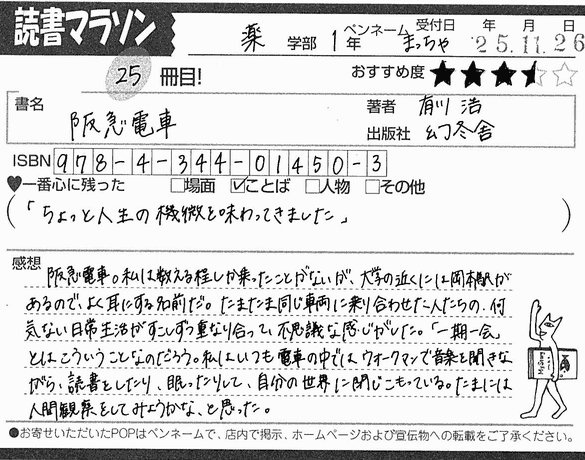 読書マラソン
薬 学部 1年 ペンネーム まっちゃ 受付日 '25年11月26日
25冊目!
おすすめ度 ★★★
書名 阪急電車
著者 有川 浩
出版社 幻冬舎
ISBN 978-4-344-01450-3
♥一番心に残った □場面 ☑ことば □人物 □その他
(「ちょっと人生の機微を味わってきました」)
感想
阪急電車。私は数える程しか乗ったことがないが、大学の近くには岡本駅が
あるので、よく耳にする名前だ。たまたま同じ車両に乗り合わせた人たちの、何
気ない日常生活がすこしずつ重なり合って、不思議な感じがした。「一期一会」
とはこういうことなのだろう。私はいつも電車の中ではウォークマンで音楽を聞きな
がら、読書をしたり、眠ったりして、自分の世界に閉じこもっている。たまには
人間観察をしてみようかな、と思った。
●お寄せいただいたPOPはペンネームで、店内で掲示、ホームページおよび宣伝物への転載をご了承ください。